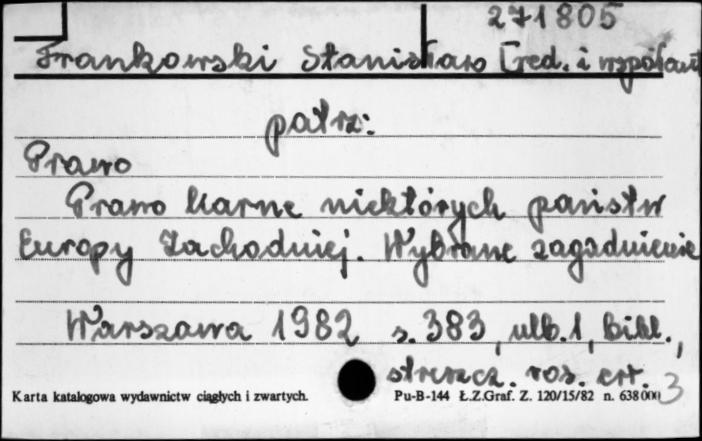 271805
Frankowski Stanisław [red. i współaut
patrz:
Prawo
Prawo karne niektórych państw
Europy Zachodniej. Wybrane zagadnienie
Warszawa 1982 s. 383, ulb. 1, bibl.,
streszcz. ros.
Karta katalogowa wydawnictw ciągłych i zwartych. Pu-B-144 Ł.Z.Graf. Z. 120/15/82 n. 638 000 3